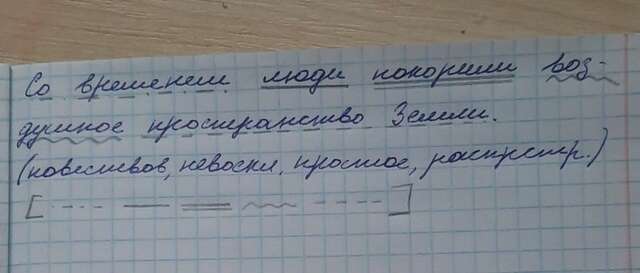 Со временем люди покорили воз-
душное пространство Земли.
(повествов, невоскл, простое, распростр.)